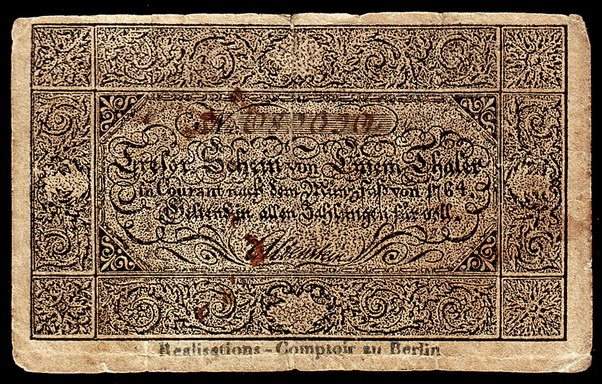 Tresor-Schein von Einem Thaler
in Courant nach dem Münzfuß von 1764
Geltend in allen Zahlungen für voll.
Realisations-Comptoir zu Berlin